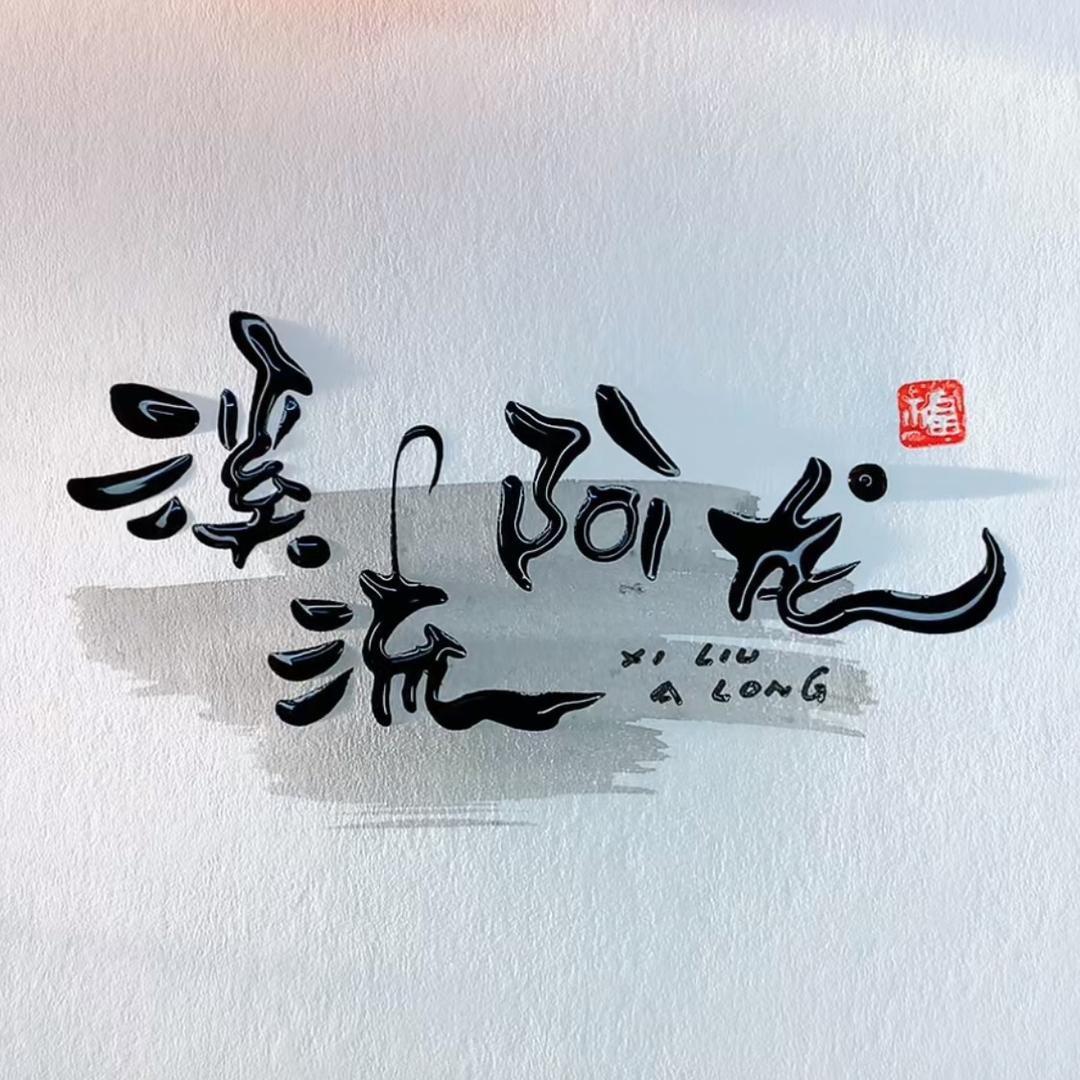 溪流阿龙
XI LIU
A LONG
福